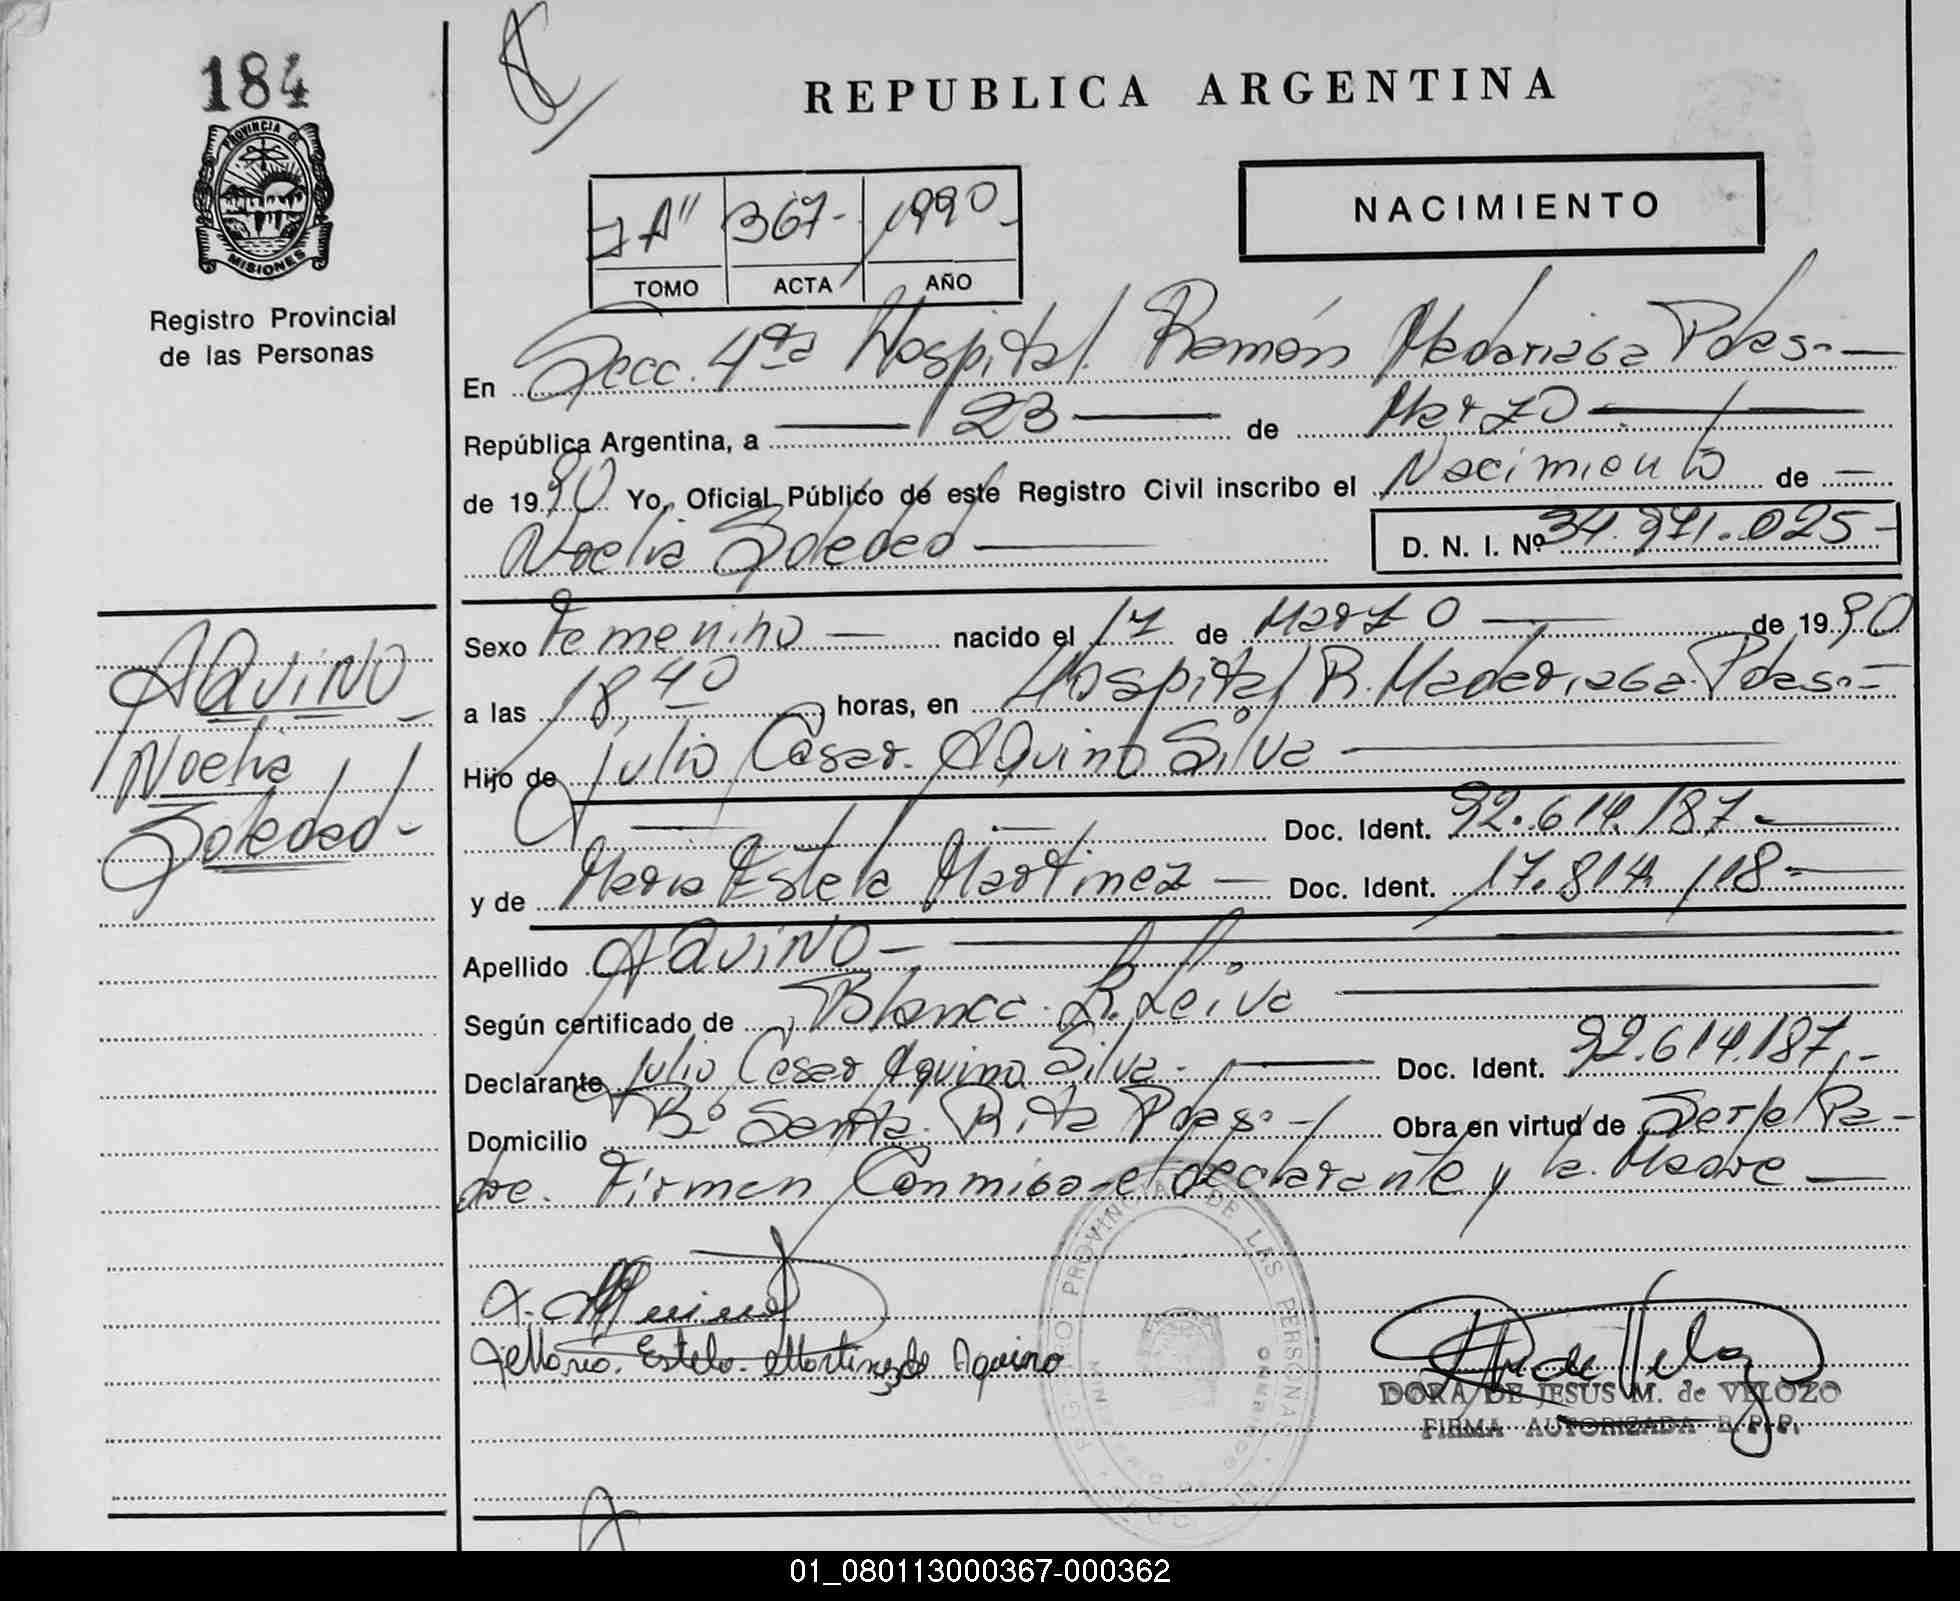 184
REPUBLICA ARGENTINA
PROVINCIA DE
MISIONES
Registro Provincial
de las Personas
"A" 367- 1990-
TOMO ACTA AÑO
NACIMIENTO
En Secc. 4ta Hospital Ramón Madariaga Pdas.-
República Argentina, a 23 de Marzo
de 1990 Yo, Oficial Público de este Registro Civil inscribo el Nacimiento de
Noelia Soledad D. N. I. Nº 34.971.025-
AQUINO
Noelia
Soledad-
Sexo Femenino nacido el 17 de Marzo de 1990
a las 18,40 horas, en Hospital R. Madariaga Pdas.-
Hijo de Julio César Aquino Silva
Doc. Ident. 92.614.187.-
y de Maria Estela Martinez Doc. Ident. 17.814.118-
Apellido AQUINO-
Según certificado de Blanca R. Leiva
Declarante Julio César Aquino Silva.- Doc. Ident. 92.614.187.-
Domicilio Bº Santa Rita Pdas.- Obra en virtud de Serle Pa-
dre. Firman Conmigo el declarante y la Madre
Maria Estela Martinez de Aquino
REGISTRO PROVINCIAL DE LAS PERSONAS
DORA DE JESUS M. de VELOZO
FIRMA AUTORIZADA R.P.P.
01_080113000367-000362